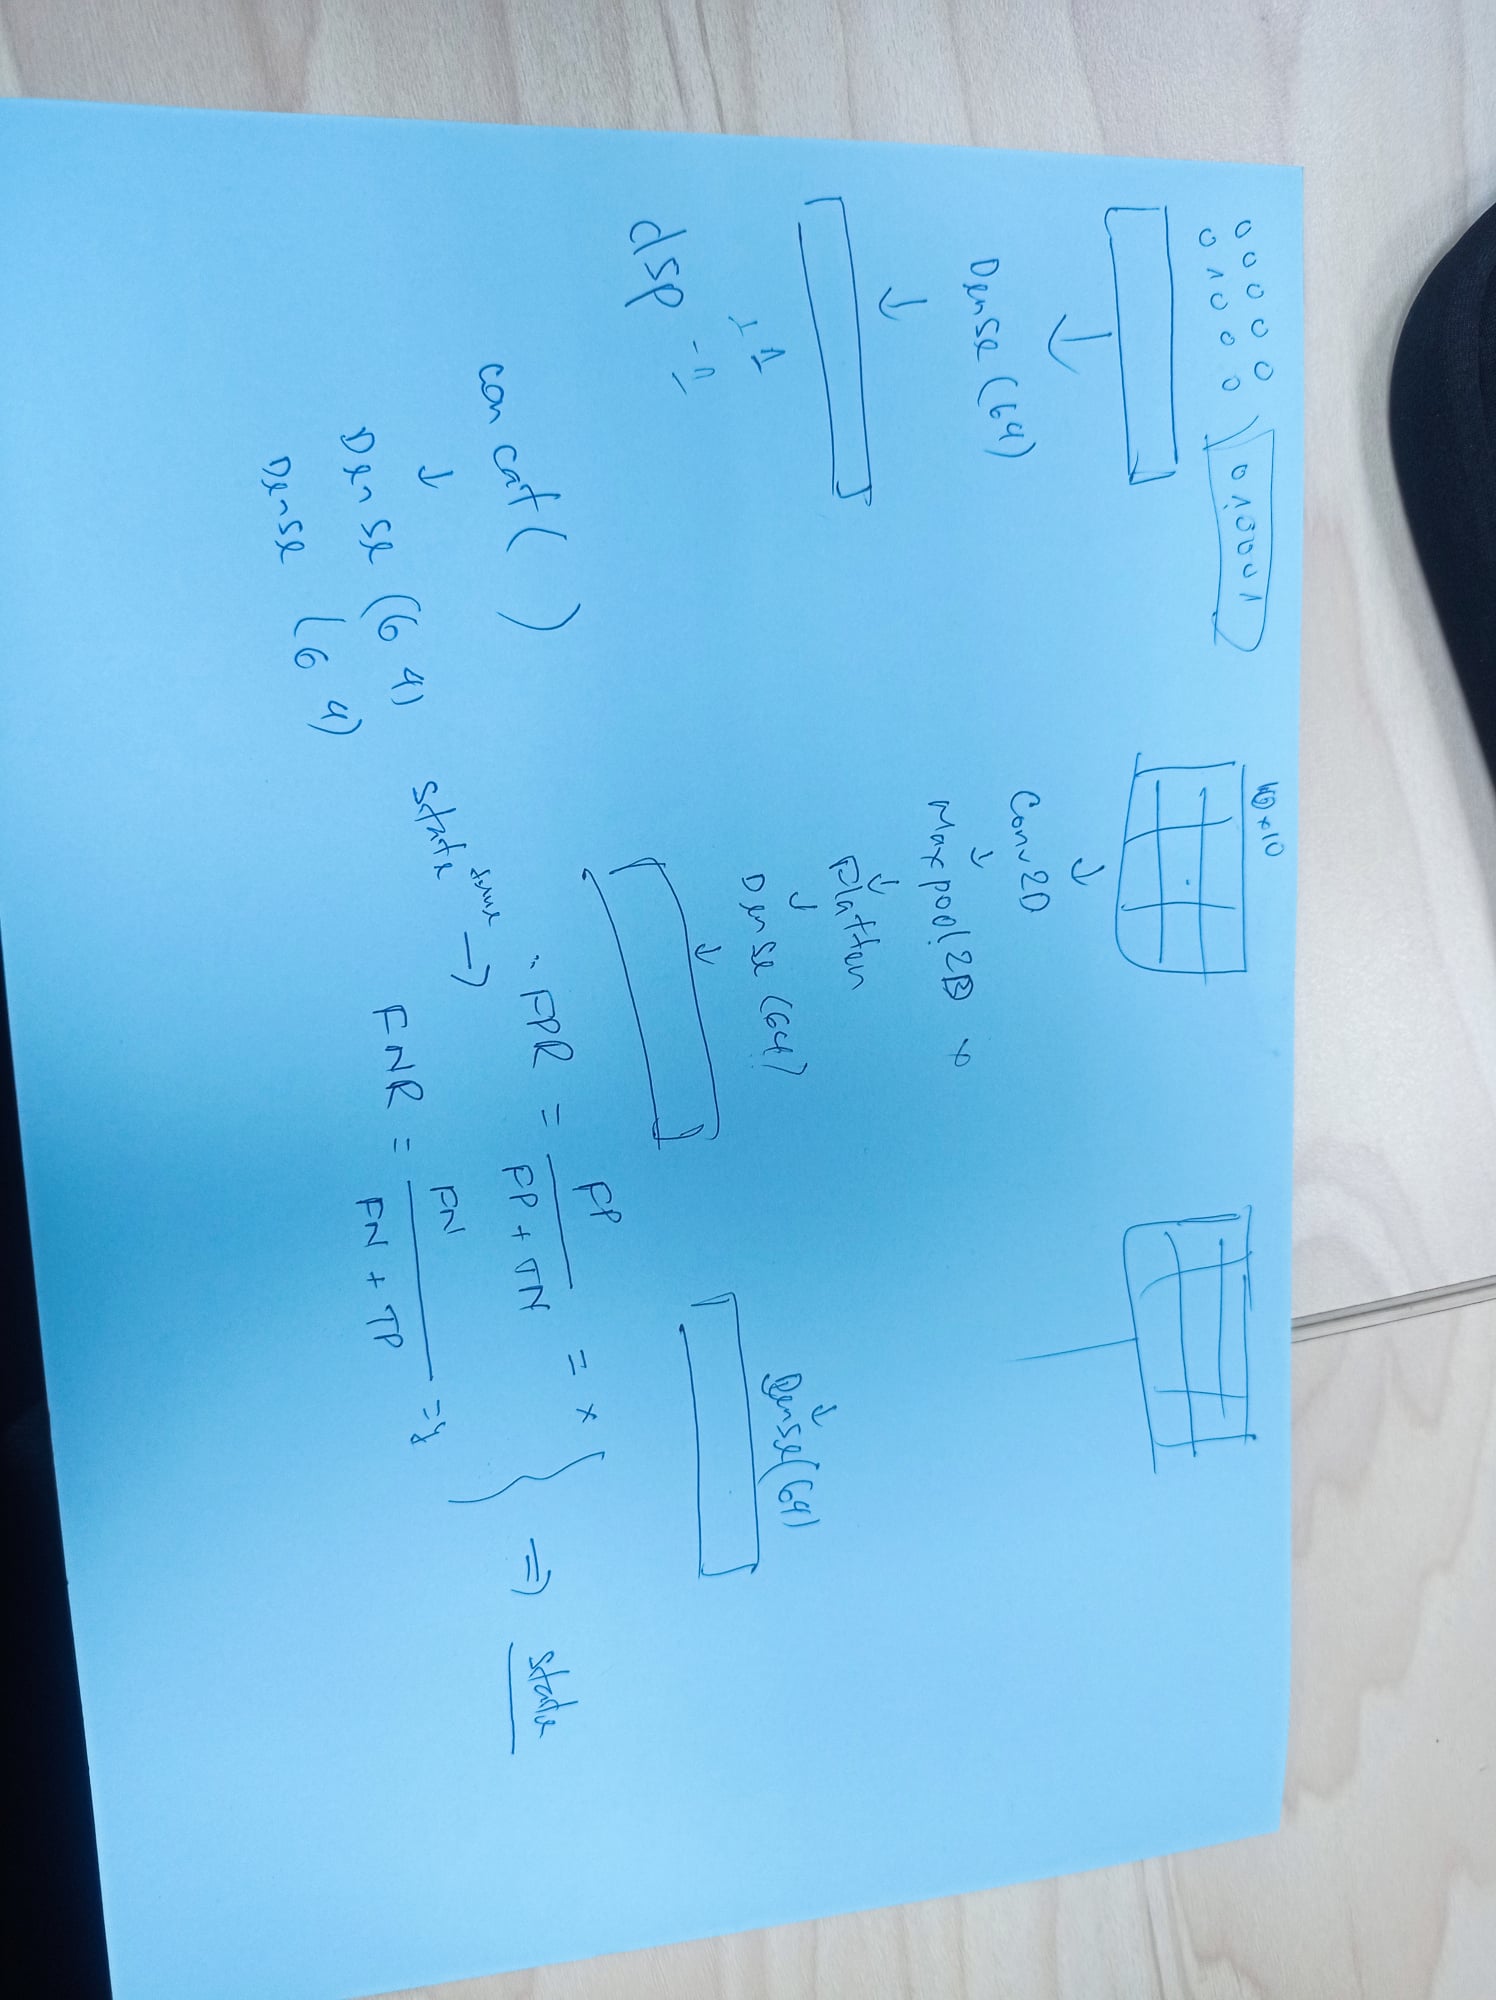 0 0 0 0 0
0 1 0 0 0
0 1 0 0 0 1
Dense (64)
dsp
10x10
Conv2D
Maxpool2D x
Flatten
Dense (64)
Dense(64)
concat( )
Dense (64)
Dense (64)
state true →
FPR = FP / FP + TN = x
FNR = FN / FN + TP = y
⇒ state